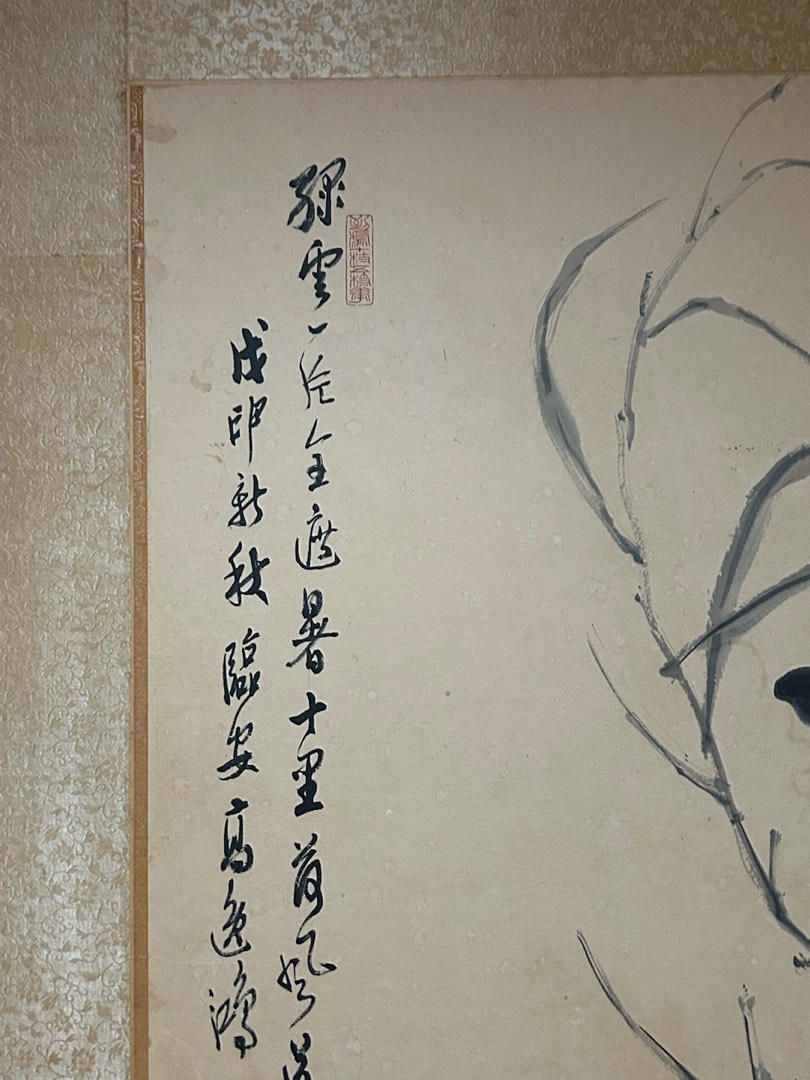 綠雲一片全遮暑十里荷風
戊申新秋臨安高逸鴻